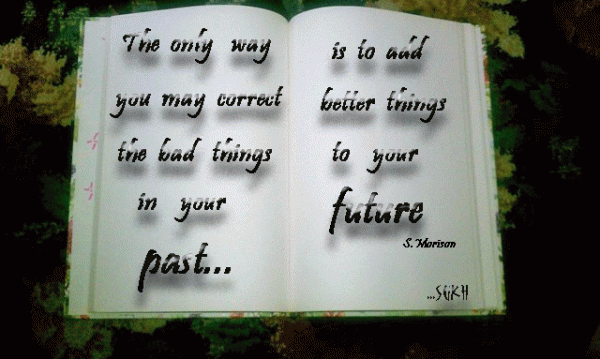 The only way
you may correct
the bad things
in your
past...
is to add
better things
to your
future
S. Morison
...SUKH